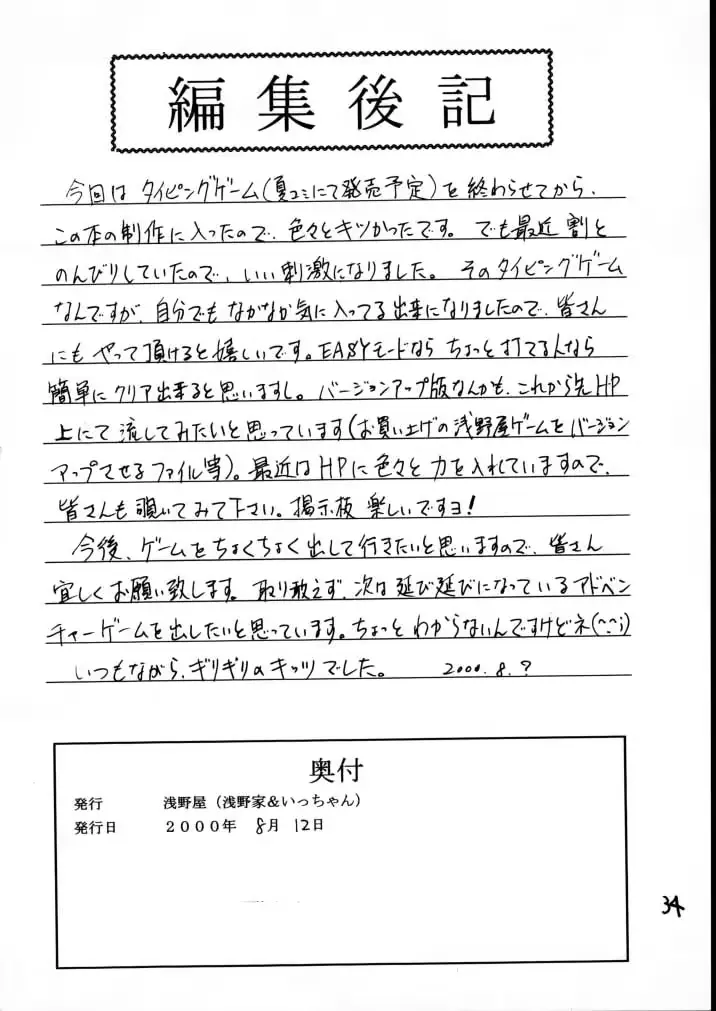 編集後記
今回は タイピングゲーム(夏コミにて発売予定)を終わらせてから、
この本の制作に入ったので、色々とキツかったです。でも最近 割と
のんびりしていたので、いい刺激になりました。そのタイピングゲーム
なんですが、自分でも なかなか気に入ってる出来になりましたので、皆さん
にも やって頂けると嬉しいです。EASYモードなら ちょっと打てる人なら
簡単に クリア出来ると思いますし。バージョンアップ版なんかも、これから先HP
上にて 流してみたいと思っています(お買い上げの浅野屋ゲームをバージョン
アップさせるファイル等)。最近は HPに色々と 力を入れていますので、
皆さんも 覗いてみて下さい。掲示板 楽しいですヨ!
今後、ゲームをちょくちょく出して行きたいと思いますので、皆さん
宜しくお願い致します。取り敢えず、次は 延び延びになっているアドベン
チャーゲームを出したいと思っています。ちょっと わからないんですけどネ(^^;)
いつもながら、ギリギリのキッツでした。 2000.8.?
奥付
発行 浅野屋（浅野家＆いっちゃん）
発行日 ２０００年 8月 12日
34